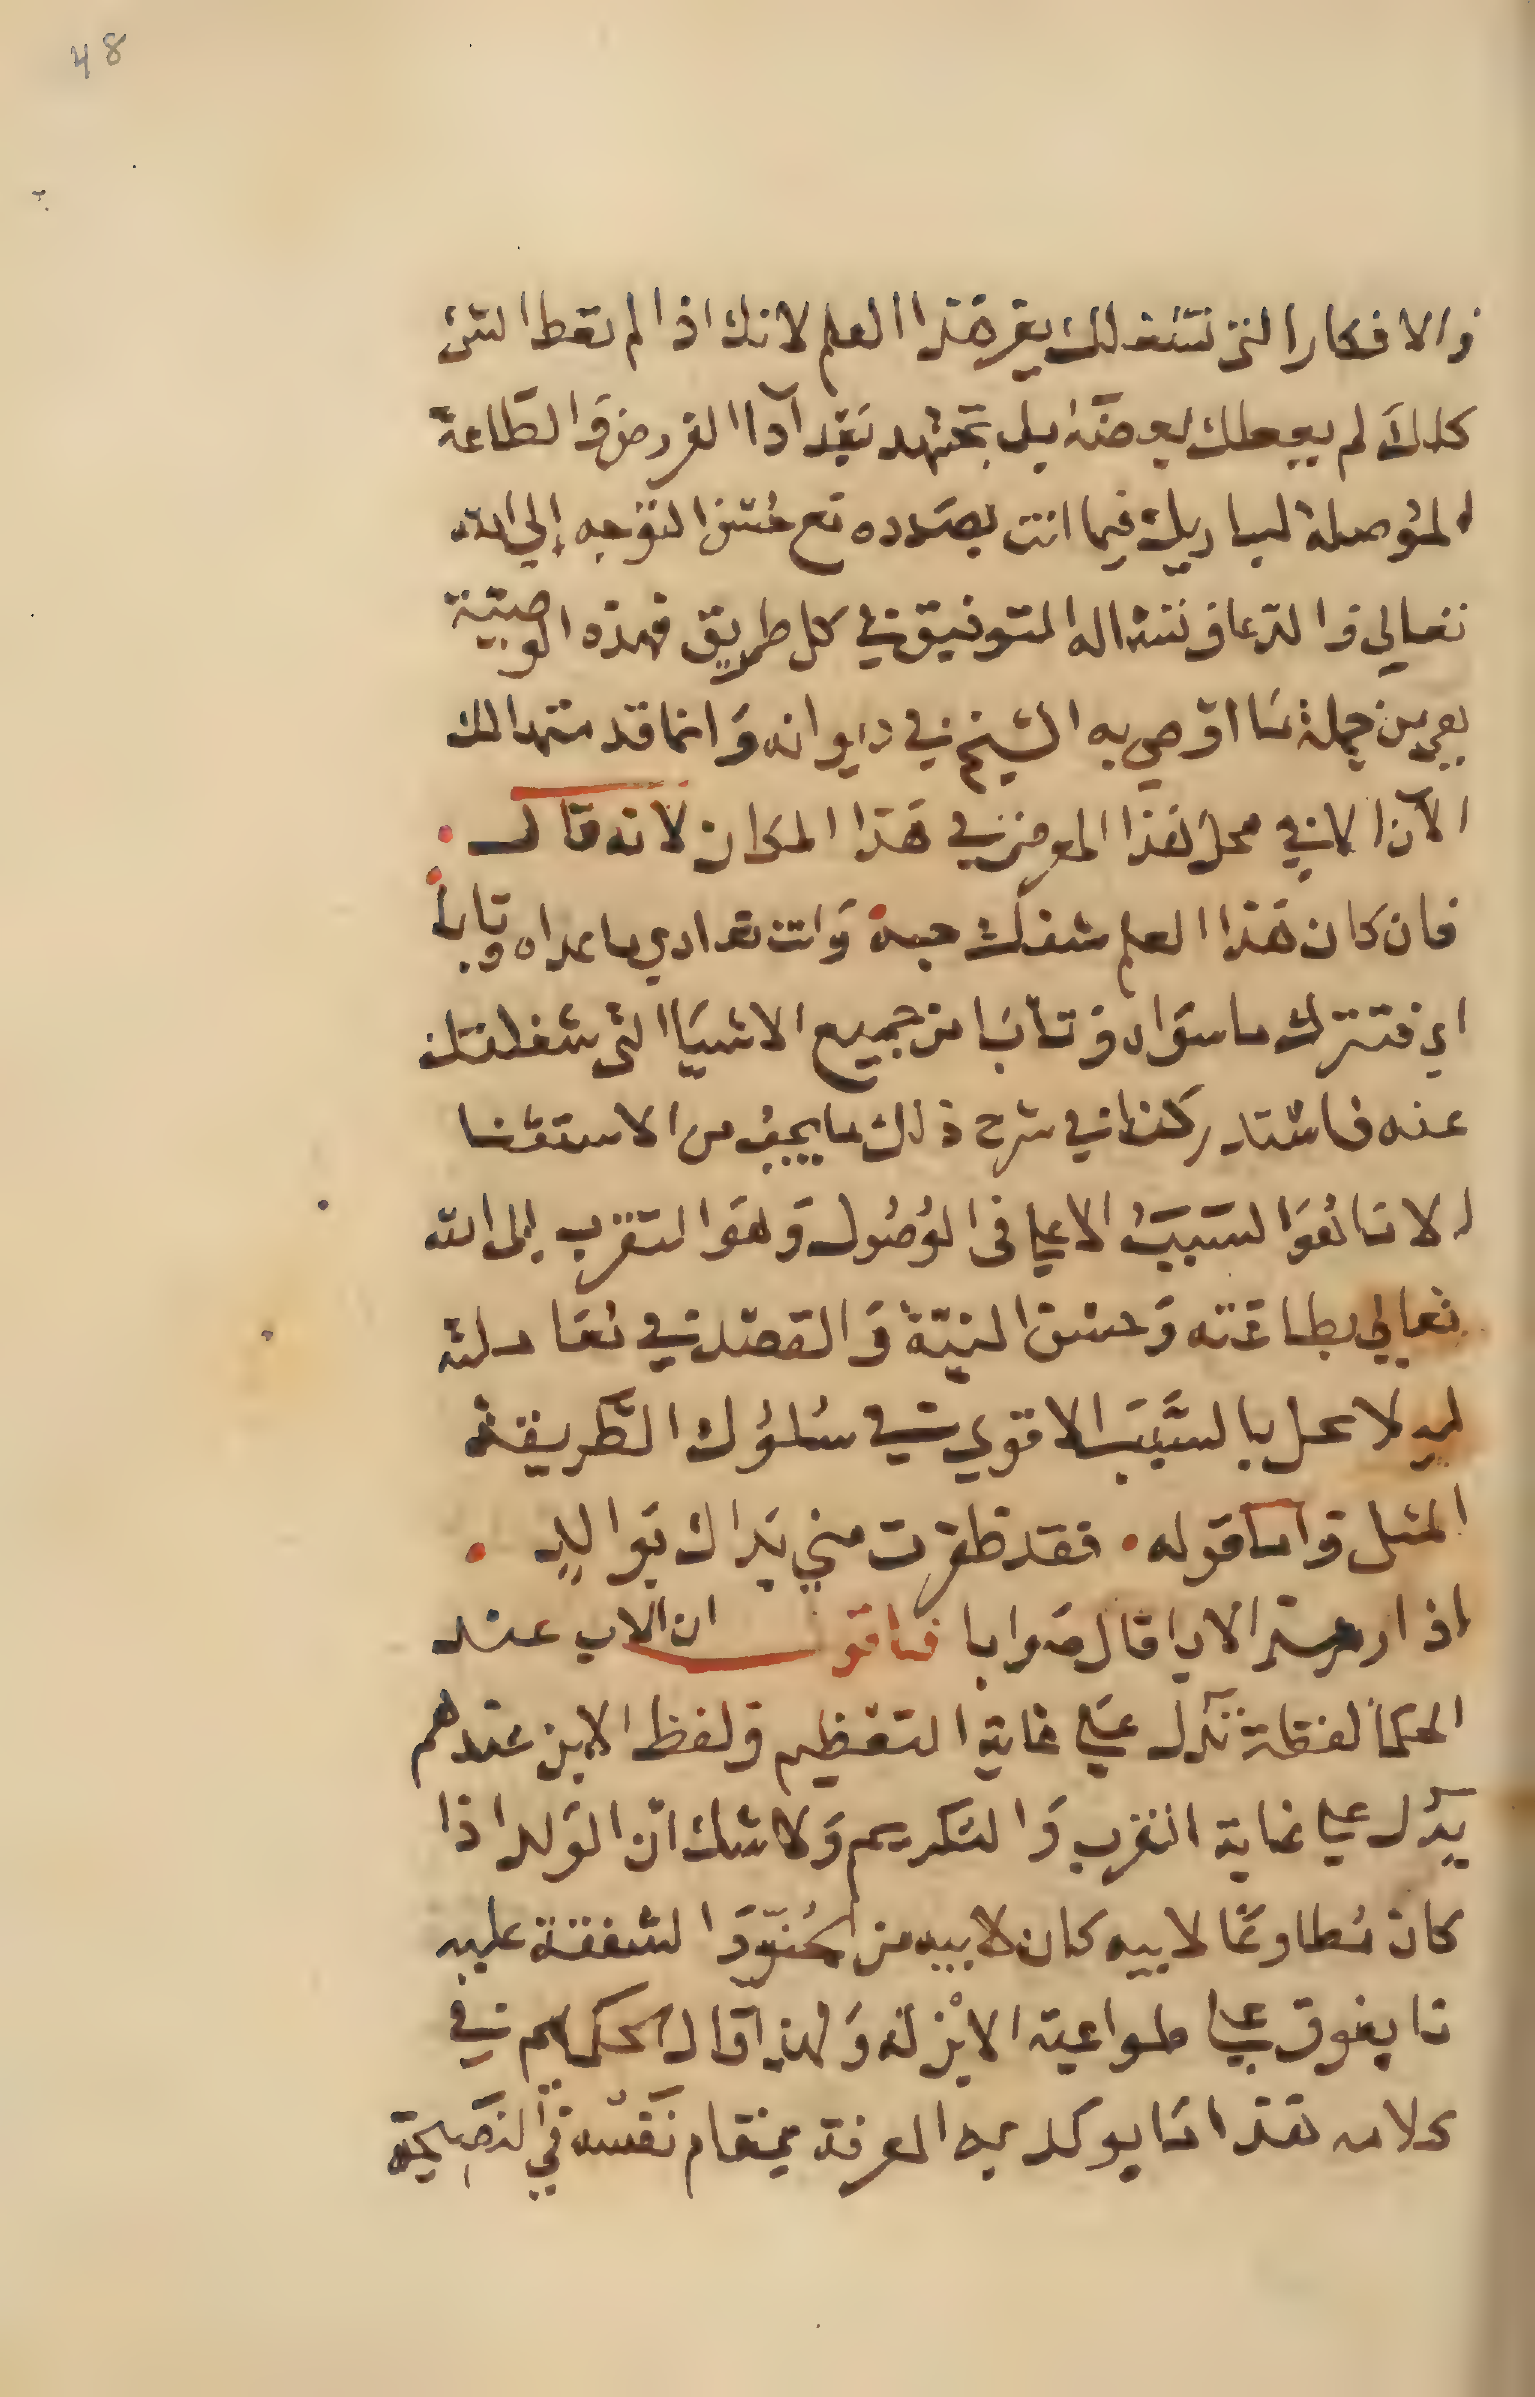 48
والافكار التي تشغلك بغير هذا العلم لانك اذا لم تعط الشئ
كلك لم يعطك بعضه بل تجتهد بعد آداا الفروض والطاعة
الموصلة لباريك فيما انت بصدده مع حسن التوجه إلي الله
تعالي والدعا وتساله التوفيق في كل طريق فهذه الوصيّة
هي من جملة ما اوصي به الشيخ في ديوانه وانما قدمتها لك
الآن لاني محل هذا المعرض في هذا المكان لانه قال
فان كان هذا العلم شغلك حبه وانت تعادي ما عداه وتابا
اي فتترك ما سواه وتابا من جميع الاشيا التي شغلتك
عنه فاستدركنا في شرح ذلك ما يجب من الاستثنا
لا ما هو السبب الاعلي في الوصول وهو التقرب إلى الله
تعالي بطاعته وحسن النيّة والقصد في معاملته
لاعمل بالسّبب الاقوي في سلوك الطّريقة
المثلى واما قوله فقد ظفرت مني يداك بوالد
اذا الابا قال صوابا فاقول ان الاب عند
الحكما لفظة تدل علي غاية التعظيم ولفظ الابن عندهم
يدل علي غاية القرب والتكريم ولا شك ان الولد اذا
كان مطاوعًا لابيه كان لابيه من الحنوّ والشفقة عليه
ما يفوق علي طواعية الابن له ولهذا قال الحكيم في
كلامه هذا ما يوكد به المعرفة بمقام نفسه في النصيحة